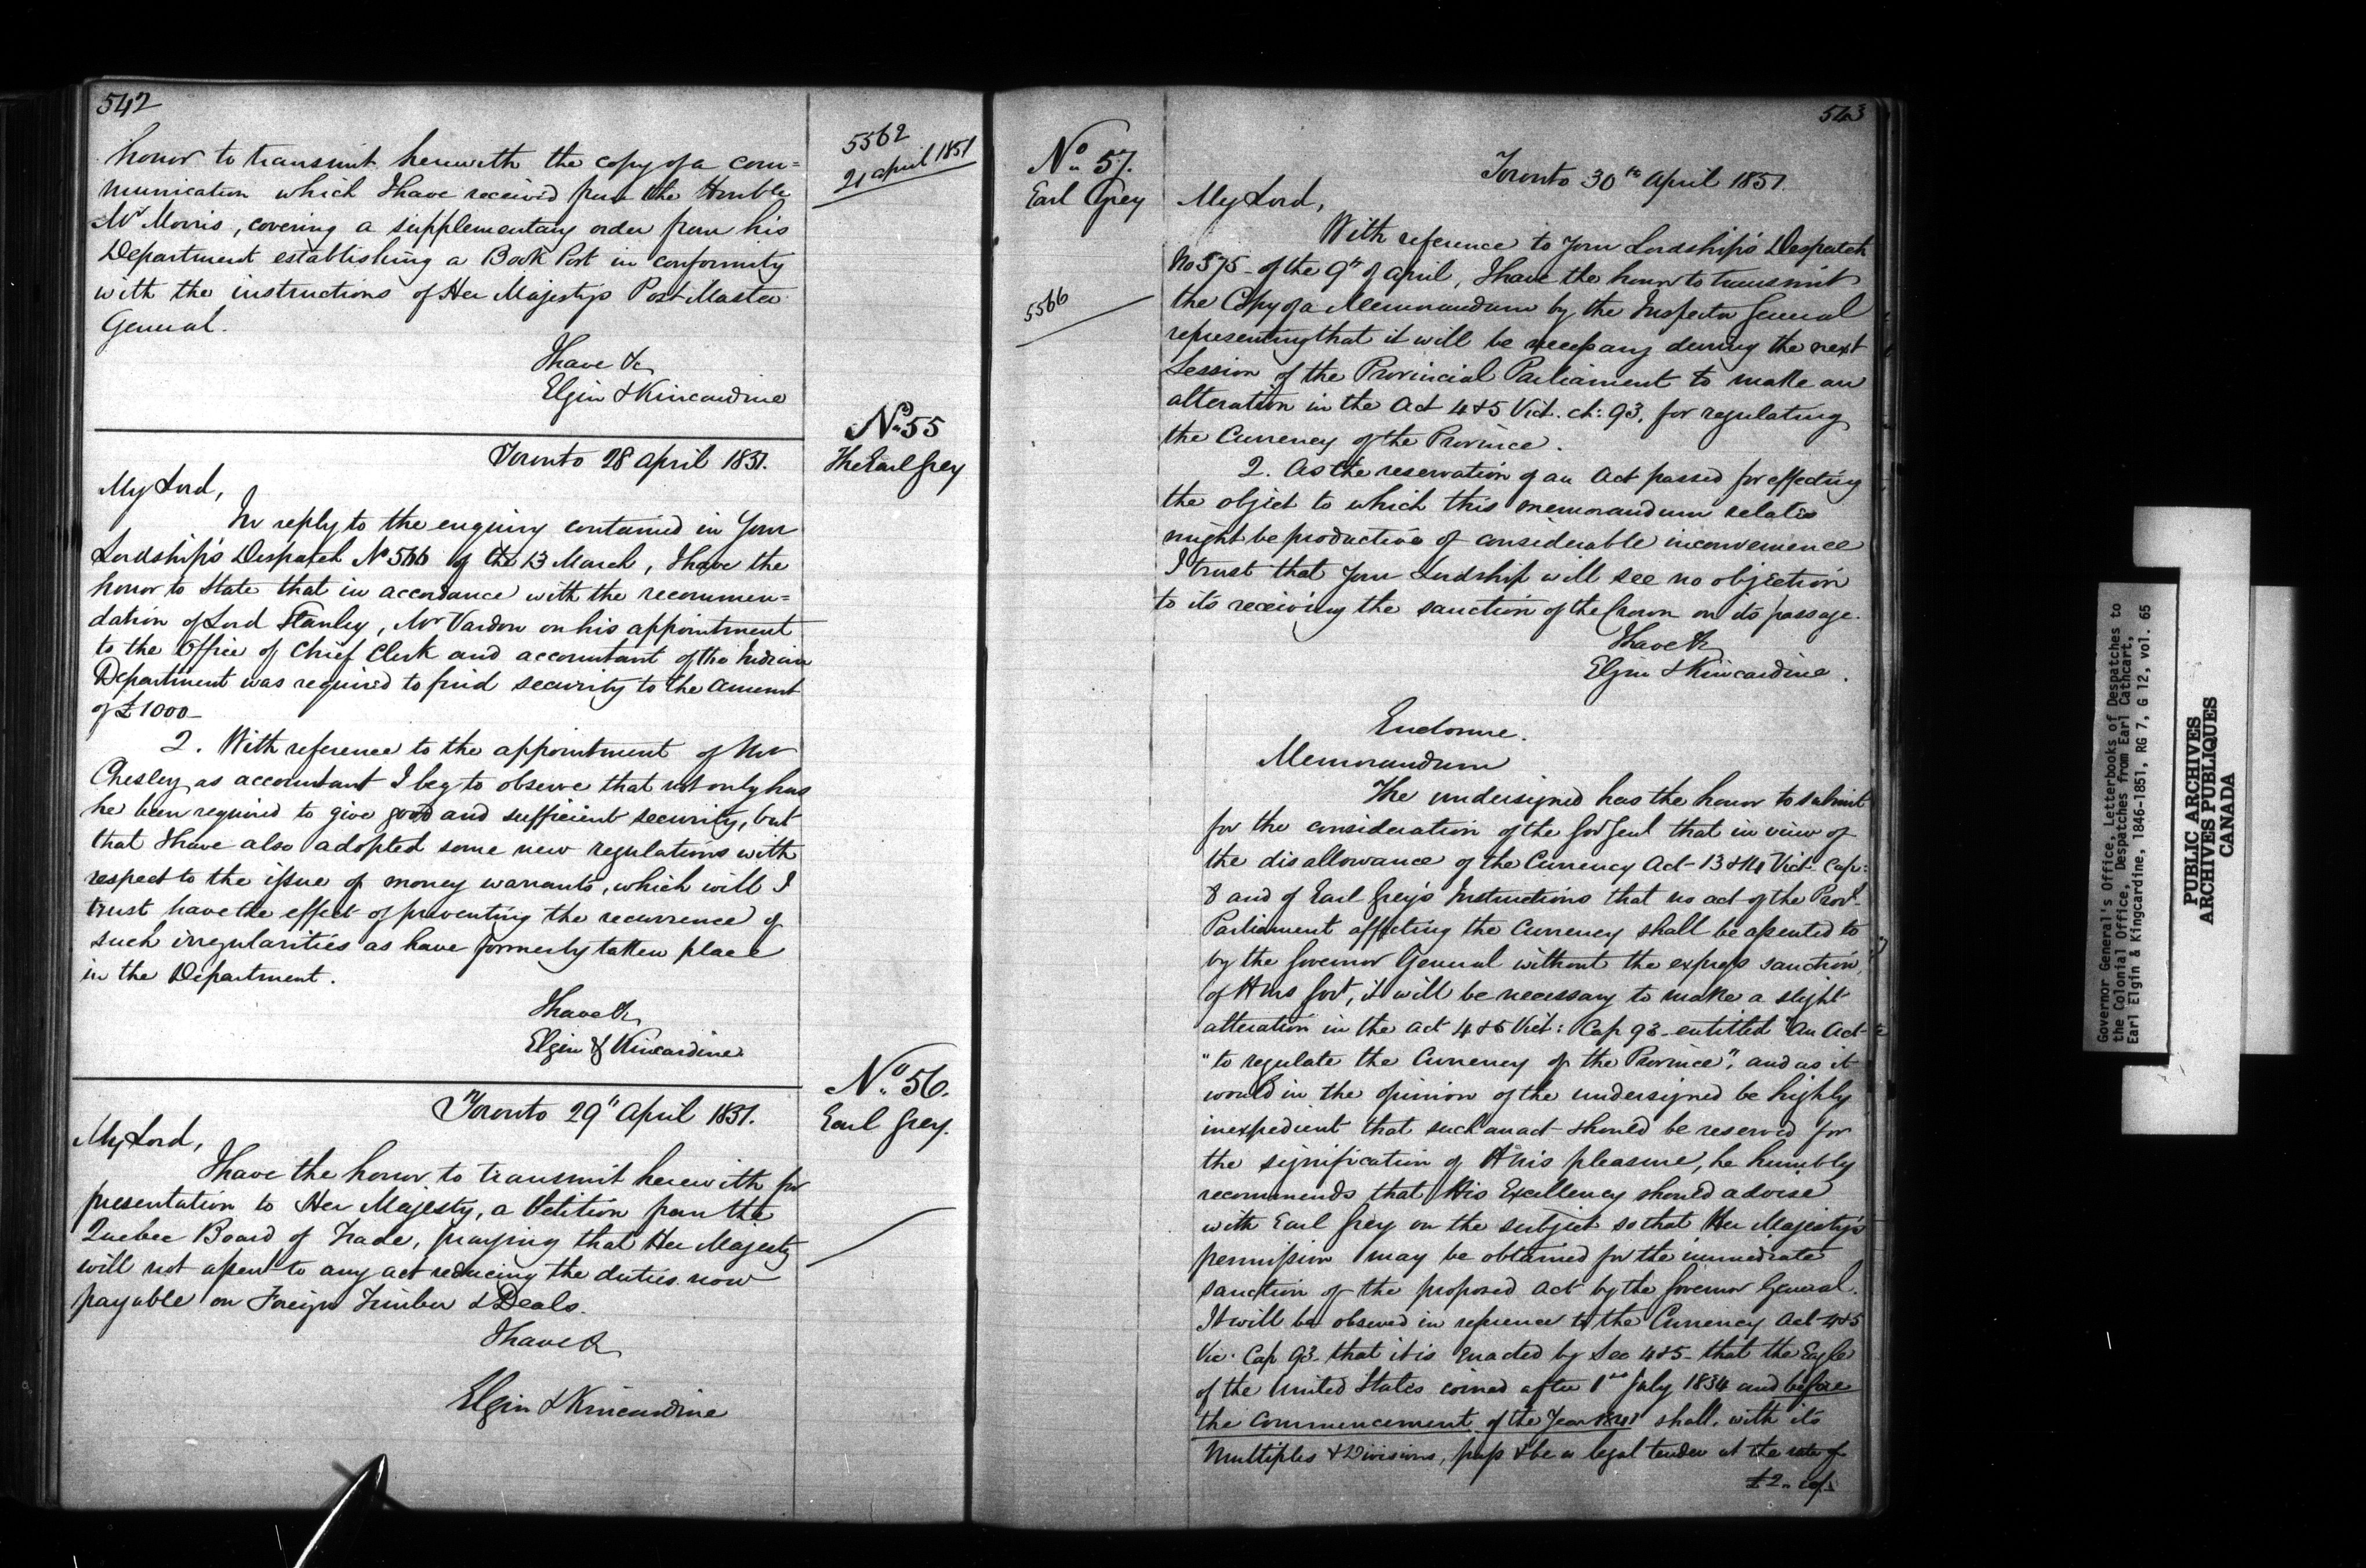 542
honor to transmit herewith the copy of a com=
munication which I have received from the Honble
Mr Morris, covering a supplementary order from his
Department establishing a Book Post in conformity
with the instructions of Her Majesty's Post Master
General.
I have &c
Elgin & Kincardine
5562
21 April 1851
No 55
The Earl Grey
Toronto 28 April 1851.
My Lord,
In reply to the enquiry contained in Your
Lordship's Despatch No 566 of the 13 March, I have the
honor to State that in accordance with the recommen=
dation of Lord Stanley, Mr Vardon on his appointment
to the Office of Chief Clerk and accountant of the Indian
Department was required to find security to the amount
of £1000_
2. With reference to the appointment of Mr
Chesley as accountant I beg to observe that not only has
he been required to give good and sufficient security, but
that I have also adopted some new regulations with
respect to the issue of money warrants, which will I
trust have the effect of preventing the recurrence of
such irregularities as have formerly taken place
in the Department.
I have &c
Elgin & Kincardine
No 56.
Earl Grey.
Toronto 29th April 1851.
My Lord,
I have the honor to transmit herewith for
presentation to Her Majesty, a Petition from the
Quebec Board of Trade, praying that Her Majesty
will not assent to any act reducing the duties now
payable on Foreign Timber & Deals.
I have &c
Elgin & Kincardine
543
No 57.
Earl Grey
5566
Toronto 30th April 1851.
My Lord,
With reference to Your Lordship's Despatch
No 575_ of the 9th of April, I have the honor to transmit
the Copy of a Memorandum by the Inspector General
representing that it will be necessary during the next
Session of the Provincial Parliament to make an
alteration in the Act 4 & 5 Vict. ch: 93. for regulating
the Currency of the Province.
2. As the reservation of an Act passed for effecting
the object to which this memorandum relates
might be productive of considerable inconvenience
I trust that Your Lordship will see no objection
to its receiving the sanction of the Crown on its passage.
I have &c
Elgin & Kincardine.
Enclosure.
Memorandum
The undersigned has the honor to submit
for the consideration of the Govr Genl that in view of
the disallowance of the Currency Act 13 & 14 Vict. Cap:
8 and of Earl Grey's Instructions that no act of the Provl
Parliament affecting the Currency shall be assented to
by the Governor General without the express sanction
of H Ms Govt, it will be necessary to make a slight
alteration in the act 4 & 5 Vict: Cap 93_ entitled "An Act
"to regulate the Currency of the Province", and as it
would in the opinion of the undersigned be highly
inexpedient that such an act should be reserved for
the signification of H M's pleasure, he humbly
recommends that His Excellency should advise
with Earl Grey on the subject so that Her Majesty's
permission may be obtained for the immediate
sanction of the proposed Act by the Governor General.
It will be observed in reference to the Currency Act 4 & 5
Vic. Cap 93_ that it is Enacted by Sec 4 & 5_ that the Eagle
of the United States coined after 1st July 1834 and before
the Commencement of the Year 1841 shall, with its
Multiples & Divisions, pass & be a legal tender at the rate of
£2.
Governor General's Office, Letterbooks of Despatches to
the Colonial Office, Despatches from Earl Cathcart,
Earl Elgin & Kingcardine, 1846-1851, RG 7, G 12, vol. 65
PUBLIC ARCHIVES
ARCHIVES PUBLIQUES
CANADA